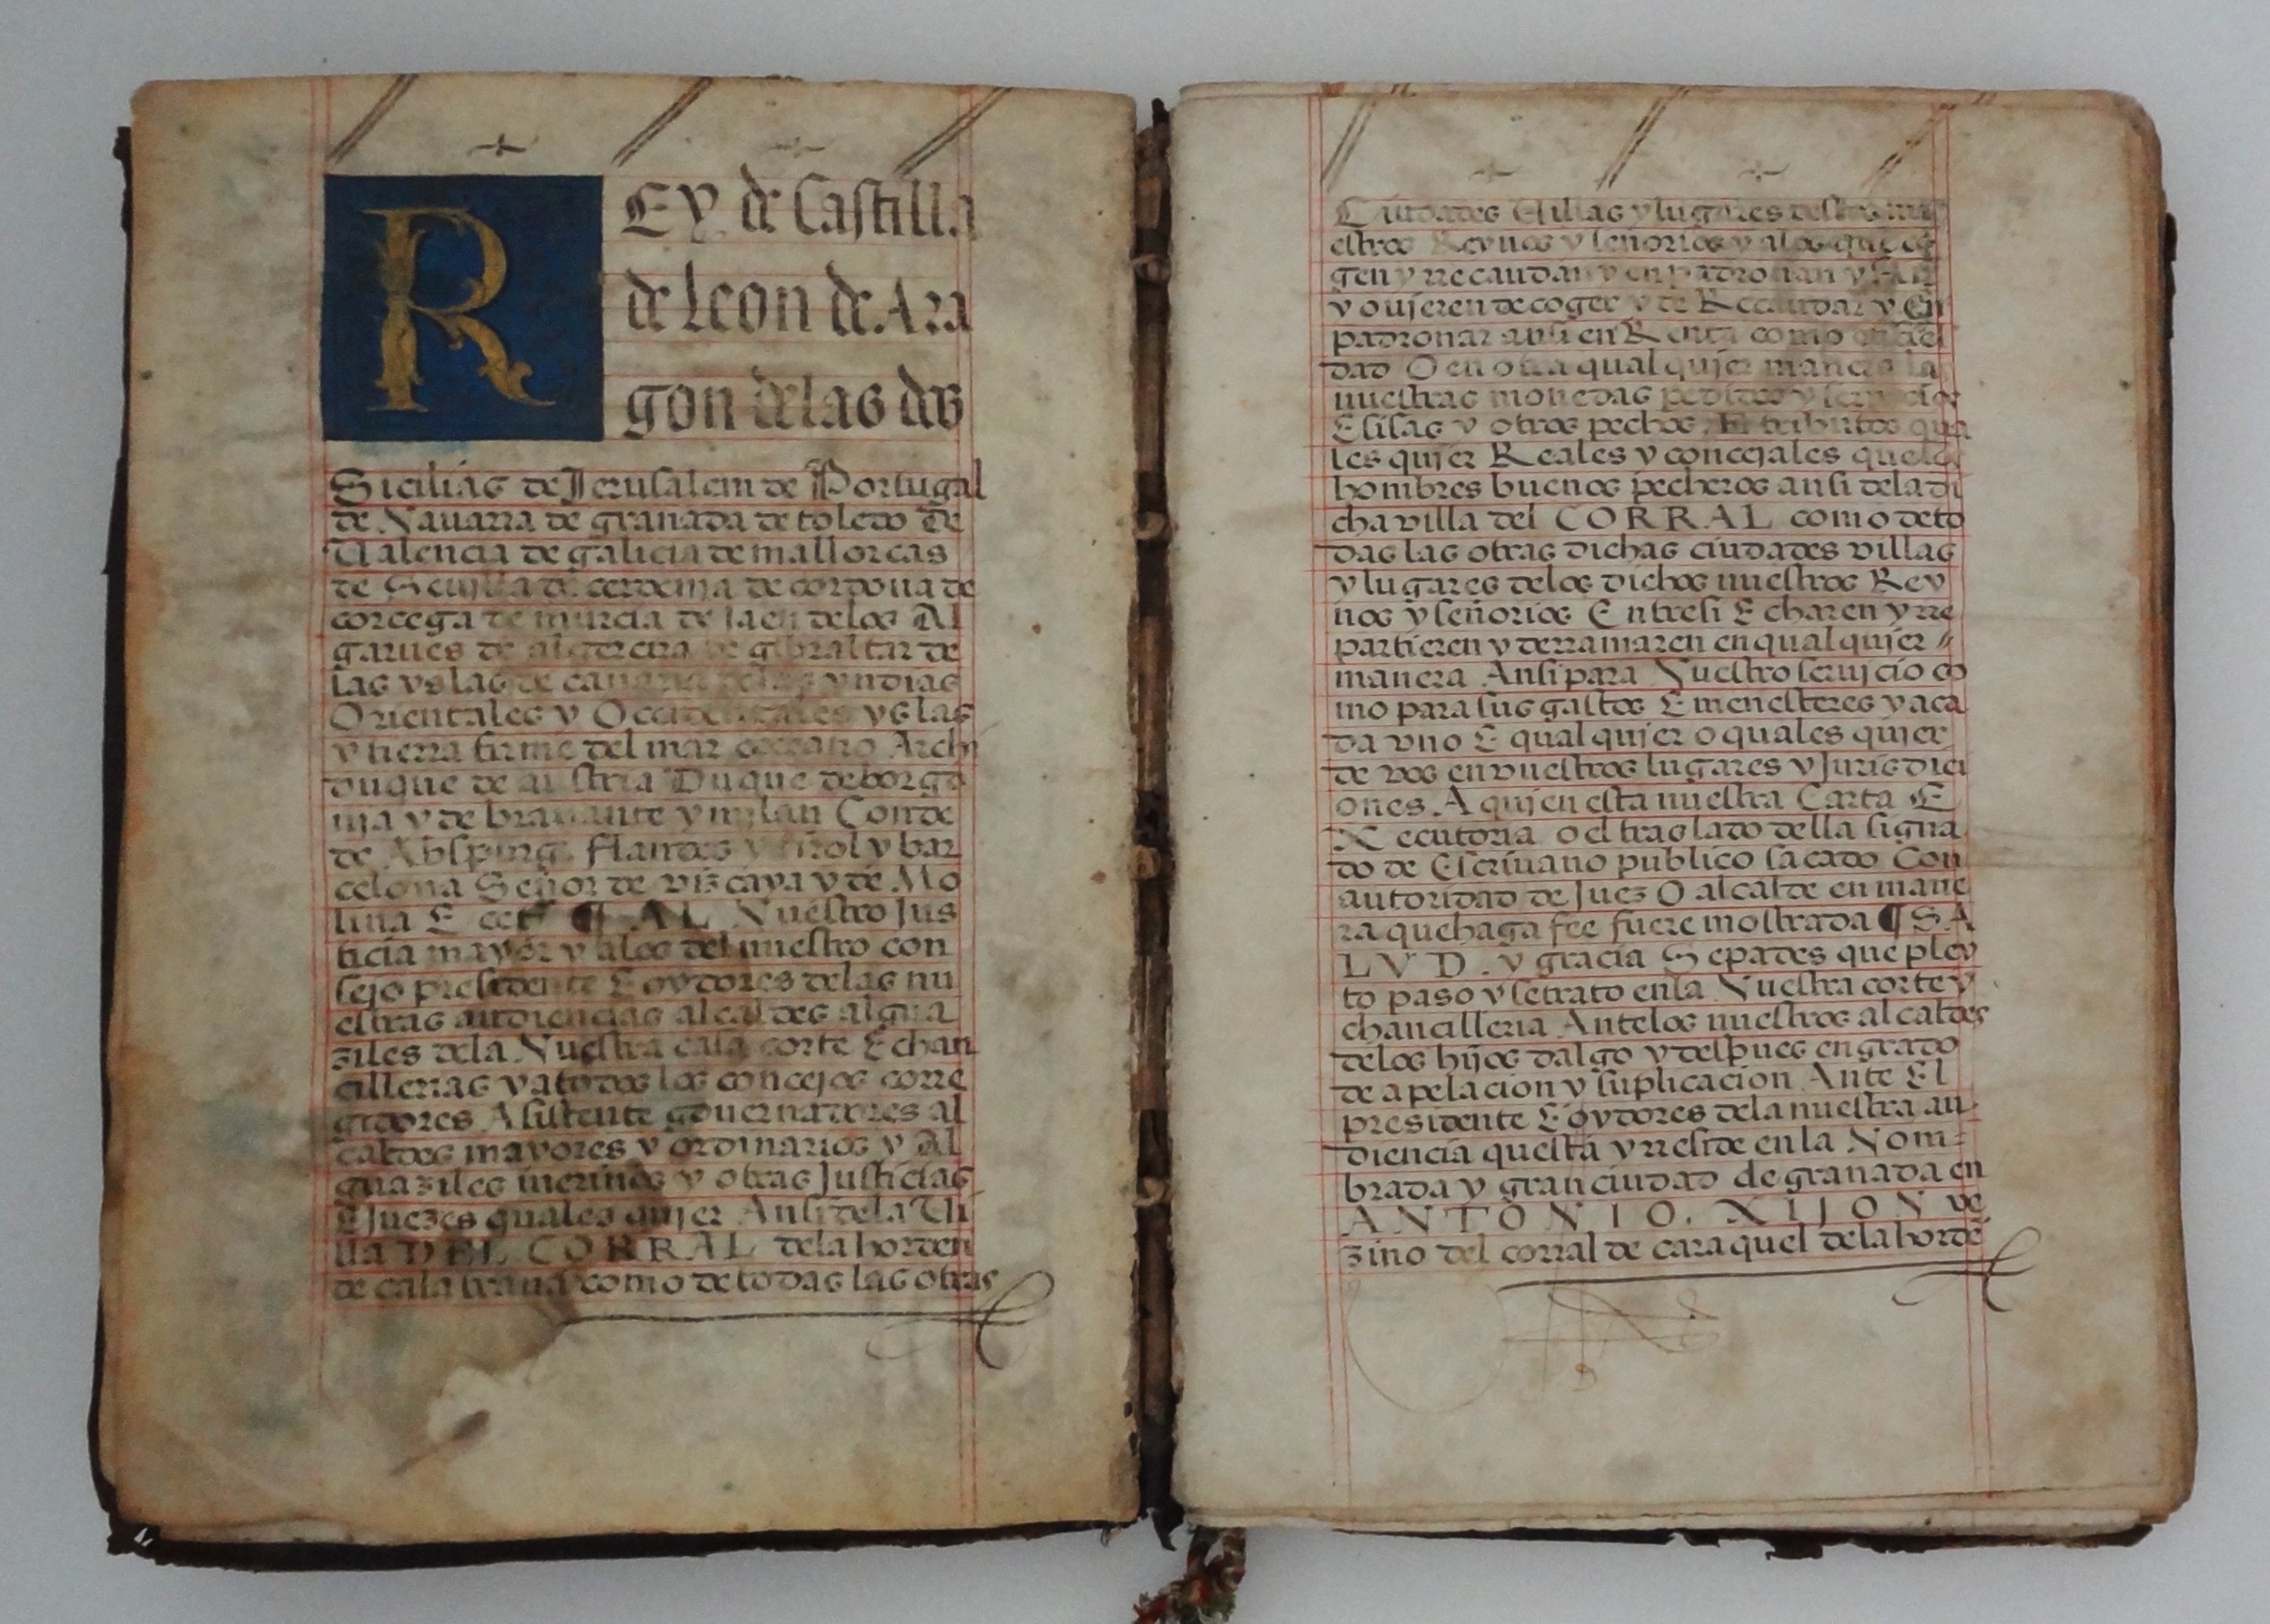 REy de Castilla
de leon de Ara
gon delas dos
Sicilias de Jerusalem de Portugal
de Nauarra de granada de toledo De
Ualencia de galicia de mallorcas
de Seuilla de cerdeña de cordoua de
corcega de murcia de Jaen delos Al
garues de algezira de gibraltar de
las yslas de canaria delas yndias
Orientales y Occidentales yslas
y tierra firme del mar occeano Archi
duque de austria Duque de borgo
ña y de brauante y milan Conde
de Abspurg flandes y tirol y bar
celona Señor de vizcaya y de Mo
lina E cetª ¶ AL Nuestro Jus
ticia mayor y alos del nuestro con
sejo presidente E oydores delas nu
estras audiencias alcaldes algua
ziles dela Nuestra casa corte E chan
cillerias y atodos los concejos corre
gidores Asistente gouernadores al
caldes mayores y ordinarios y Al
guaziles merinos y otras Justicias
E Juezes quales quier Ansi dela Ui
lla DEL CORRAL dela horden
de calatraua como de todas las otras
Ciudades Uillas y lugares destos nu
estros Reynos y señorios y alos que co
gen y rrecaudan y enpadronan y
y ouieren de coger y de Recaudar y En
padronar ansi en Renta como en fiel
dad O en otra qual quier manera las
nuestras monedas pedidos y seruicios
E sisas y otros pechos E tributos qua
les quier Reales y concejales quelos
hombres buenos pecheros ansi dela di
cha villa del CORRAL como de to
das las otras dichas ciudades villas
y lugares delos dichos nuestros Rey
nos y señorios Entresi Echaren y rre
partieren y derramaren en qualquier
manera Ansi para Nuestro seruicio co
mo para sus gastos E menesteres y aca
da vno E qual quier o quales quier
de vos en vuestros lugares y Jurisdici
ones. A quien esta nuestra Carta E
Xecutoria o el traslado della signa
do de Escriuano publico sacado Con
autoridad de Juez O alcalde en mane
ra que haga fee fuere mostrada ¶ SA
LVD. y gracia Sepades que pley
to paso y se trato en la Nuestra corte y
chancilleria Antelos nuestros alcaldes
delos hijos dalgo y despues en grado
de apelacion y suplicacion Ante El
presidente E oydores dela nuestra au
diencia questa y rreside en la Nom=
brada y gran ciudad de granada en
ANTONIO. XIJON ve
zino del corral de caraquel dela horde